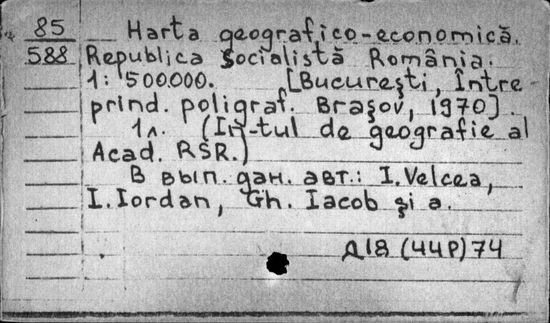 85
588
Harta geografico-economică.
Republica Socialistă România.
1:500.000. [București, Între-
prind. poligraf. Brașov, 1970].
1 л. (In-tul de geografie al
Acad. RSR.)
В вып. дан. авт.: I. Velcea,
I. Iordan, Gh. Iacob și a.
Д18(44Р)74